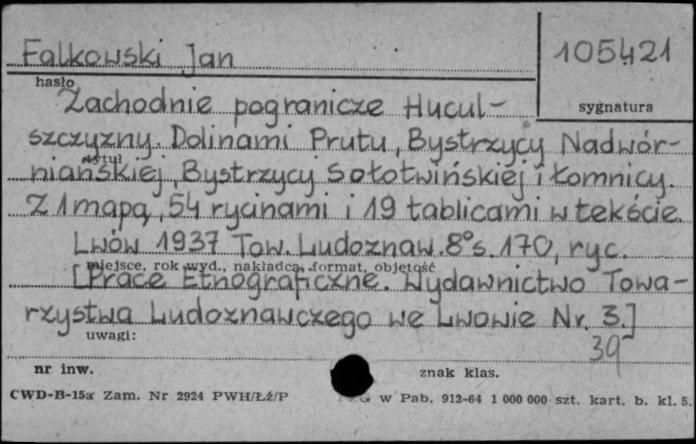 Falkowski Jan
105421
hasło
sygnatura
Zachodnie pogranicze Hucul-
szczyzny. Dolinami Prutu, Bystrzycy Nadwór-
tytuł
niańskiej, Bystrzycy Sołotwińskiej i Łomnicy.
Z 1 mapą, 54 rycinami i 19 tablicami w tekście.
Lwów 1937 Tow. Ludoznaw. 8° s. 170, ryc.
miejsce, rok wyd., nakładca, format, objętość
[Prace Etnograficzne. Wydawnictwo Towa-
rzystwa Ludoznawczego we Lwowie Nr. 3.]
uwagi:
39
nr inw.
znak klas.
CWD-B-15a Zam. Nr 2924 PWH/Łź/P
w Pab. 912-64 1 000 000 szt. kart. b. kl. 5.